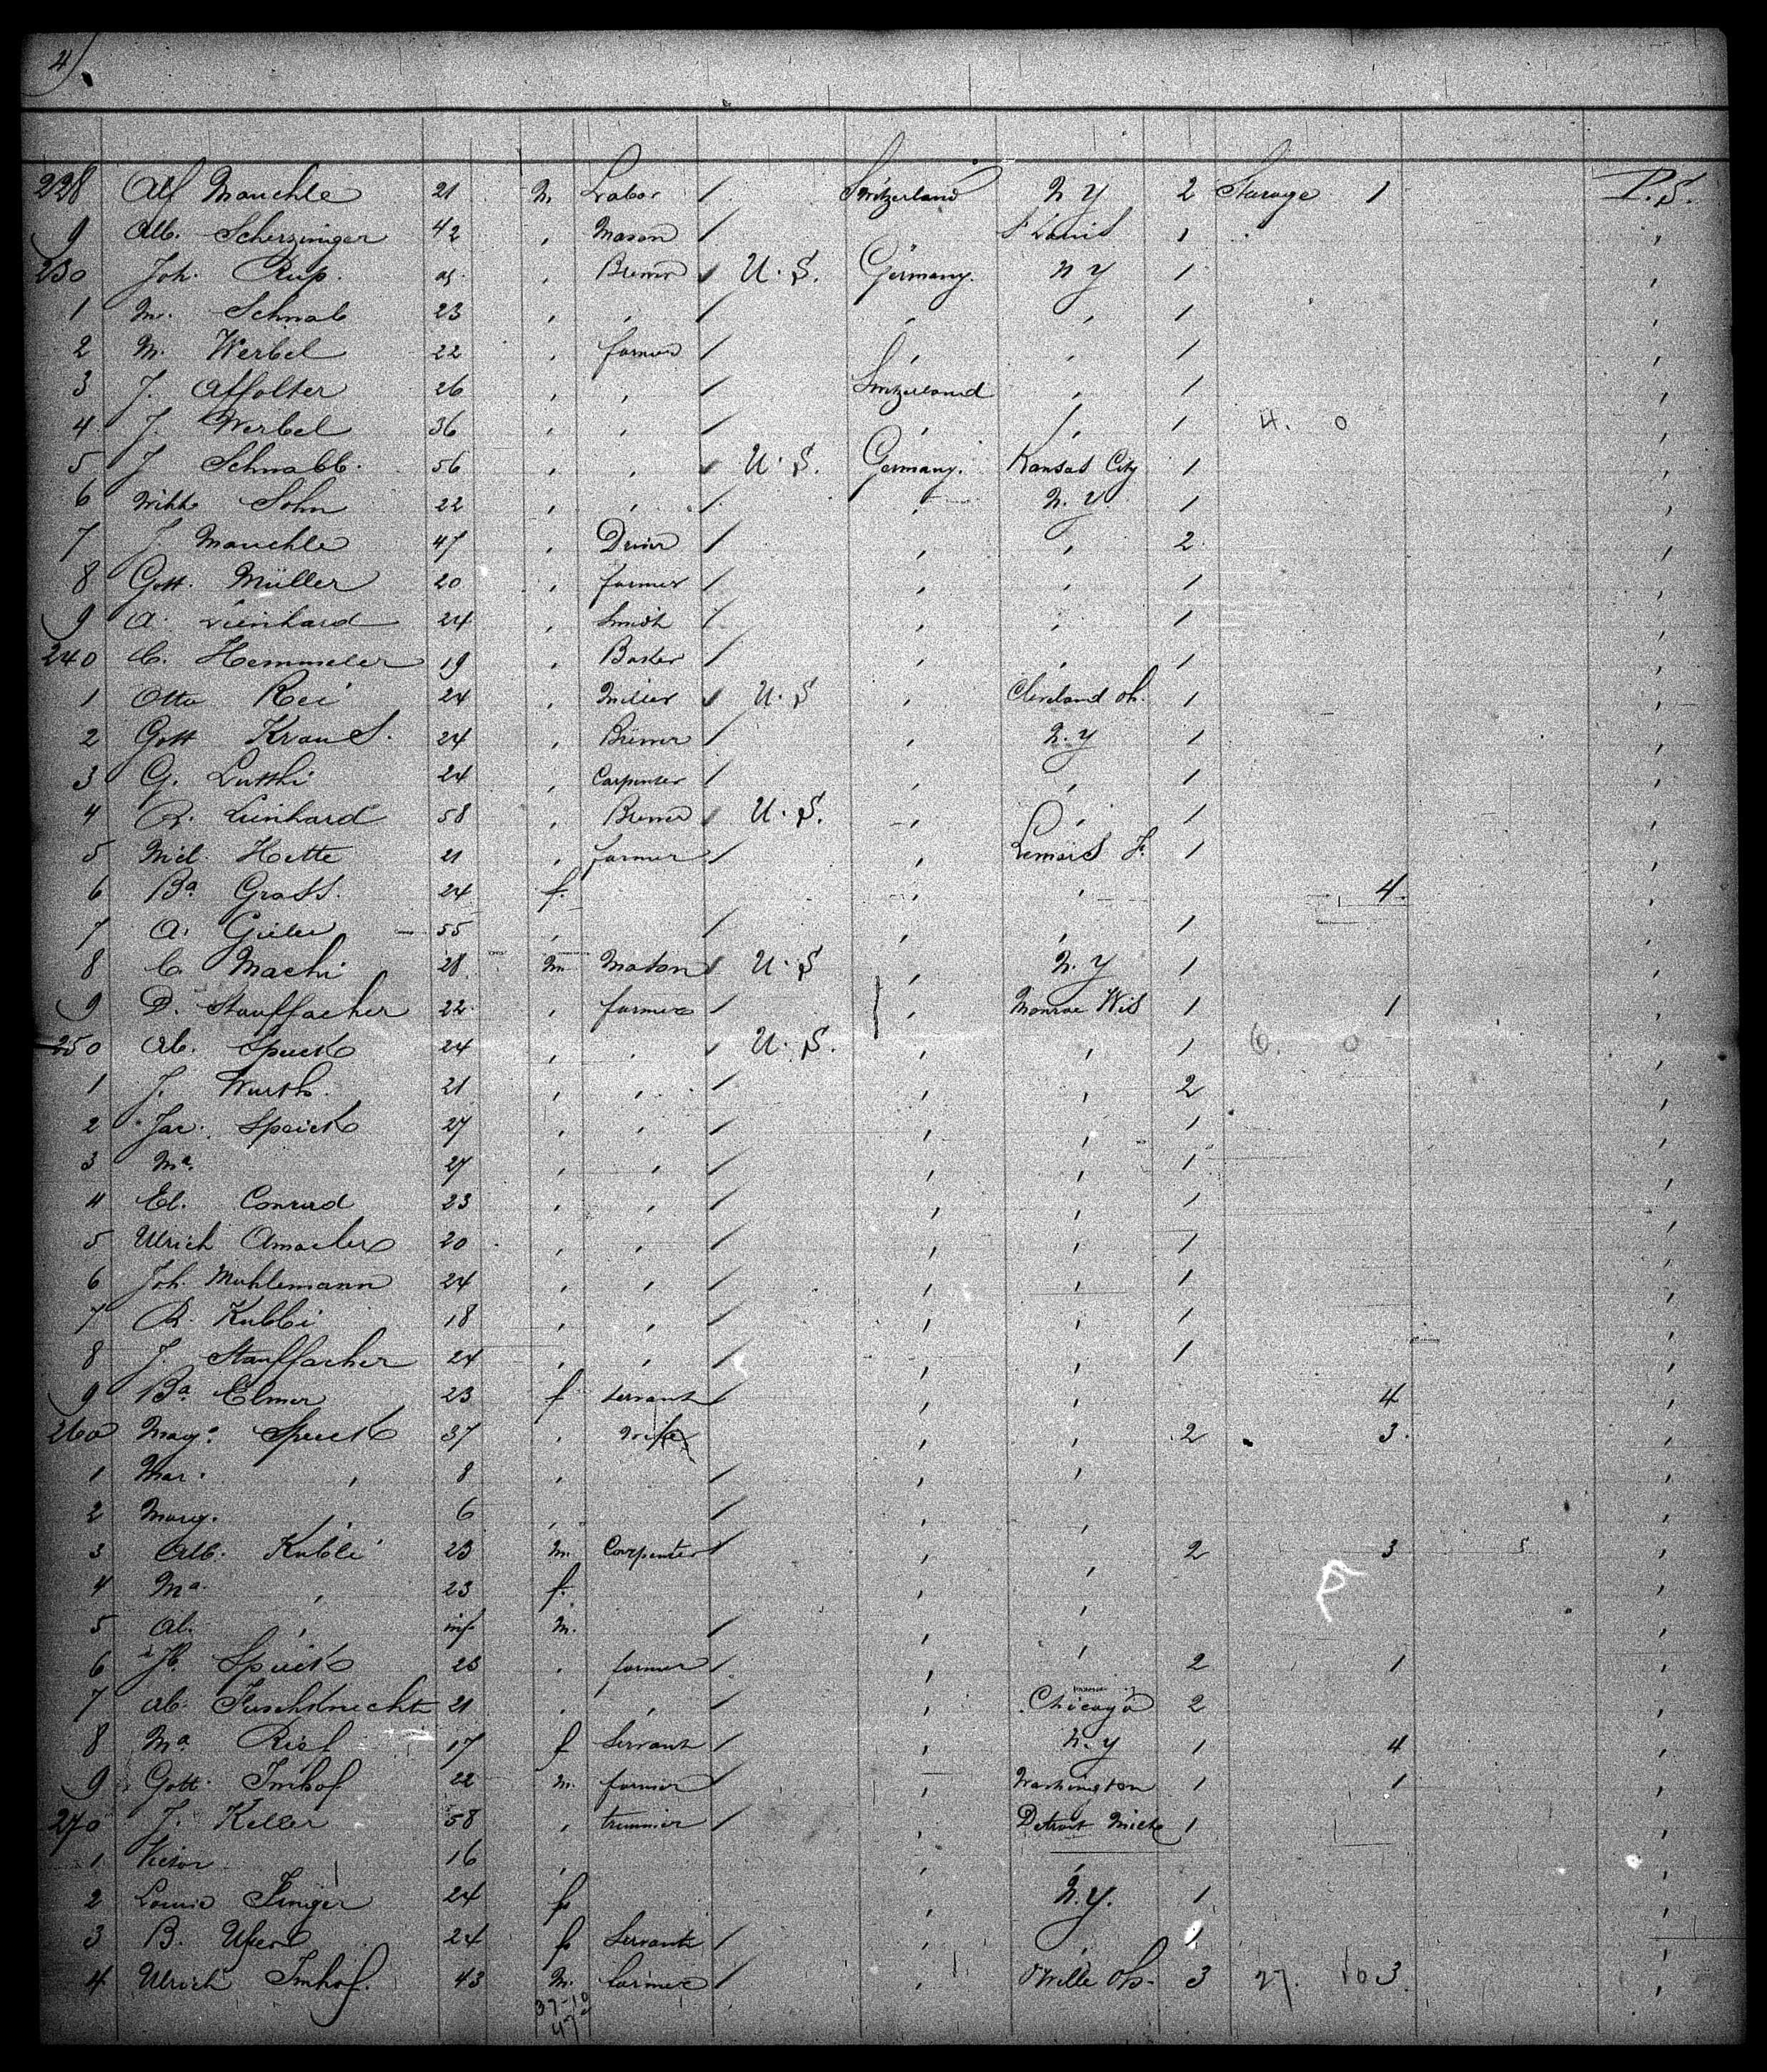 4)
228 Alf Mauchle 21 M Labor / Switzerland N Y 2 Starage 1 P. S.
9 Alb. Scherzinger 42 , Mason / St Louis 1 ,
230 Joh. Rup. , Brewer / U. S. Germany. N Y 1 ,
1 M. Schnab 23 , , / , , 1 ,
2 M. Werbel 22 , farmer / , , 1 ,
3 J. Affolter 26 , , / Switzerland , 1 ,
4 J. Werbel 36 , , / , , 1 4. 0 ,
5 J Schnabb. 56 , , / U. S. Germany. Kansas City 1 ,
6 Sohn 22 , , / , N. Y. 1 ,
7 J. Mauchle 47 , / , , 2 ,
8 Gott. Müller 20 , farmer / , , 1 ,
9 A. Lienhard 24 , Smith / , , 1 ,
240 C. Hemmeler 19 , Baker / , , 1 ,
1 Otto Rei 24 , Miller / U. S , Cleveland Oh. 1 ,
2 Gott Kraus. 24 , Brewer / , N. Y 1 ,
3 G. Lutthi 24 , Carpenter / , , 1 ,
4 R. Leinhard 58 , Brewer / U. S. , , 1 ,
5 Hette 21 , farmer / , Lemars 1 ,
6 Ba Grass. 24 f. , , 4. ,
7 A. 55 , / , , 1 ,
8 C Machi 28 M Mason / U. S , N. Y 1 ,
9 D. Stauffacher 22 , farmer / , Monroe Wis 1 1 ,
250 Ab. Speick 24 , , / U. S. , , 1 6. 0 ,
1 J. Wurth. 21 , , / , , 2 ,
2 Jac. Speick 27 , , / , , 1 ,
3 Ma. 27 , , / , , 1 ,
4 El. Conrad 23 , , / , , 1 ,
5 Ulrich Amacher 20 , , / , , 1 ,
6 Joh. Muhlemann 24 , , / , , 1 ,
7 R. Kubli 18 , , / , , 1 ,
8 J. Stauffacher 24 , , / , , 1 ,
9 Ba Elmer 23 f servant / , , 4 ,
260 Mag. Speick 37 , wife , , 2 3. ,
1 Mar. , 8 , / , , ,
2 Marg. , 6 , / , , ,
3 Alb. Kubli 23 M. Carpenter / , , 2 3 ,
4 Ma , 23 f. , , ,
5 Al. , inf M. / , , ,
6 Speick 23 , farmer / , , 2 1 ,
7 Ab. 21 , , / , Chicago 2 ,
8 Ma 17 f Servant / , N. Y 1 4 ,
9 Gott. Imhof 22 M. farmer / , Washington 1 1 ,
270 J. Keller 58 , / , Detroit Mich 1 ,
1 Victor 16 , , , ,
2 24 f , N. Y. 1 ,
3 B. 24 f Servant / , , 1 ,
4 Ulrich Imhof. 43 M. farmer / , Oh. 3 27. 10 3. ,
37-10
47